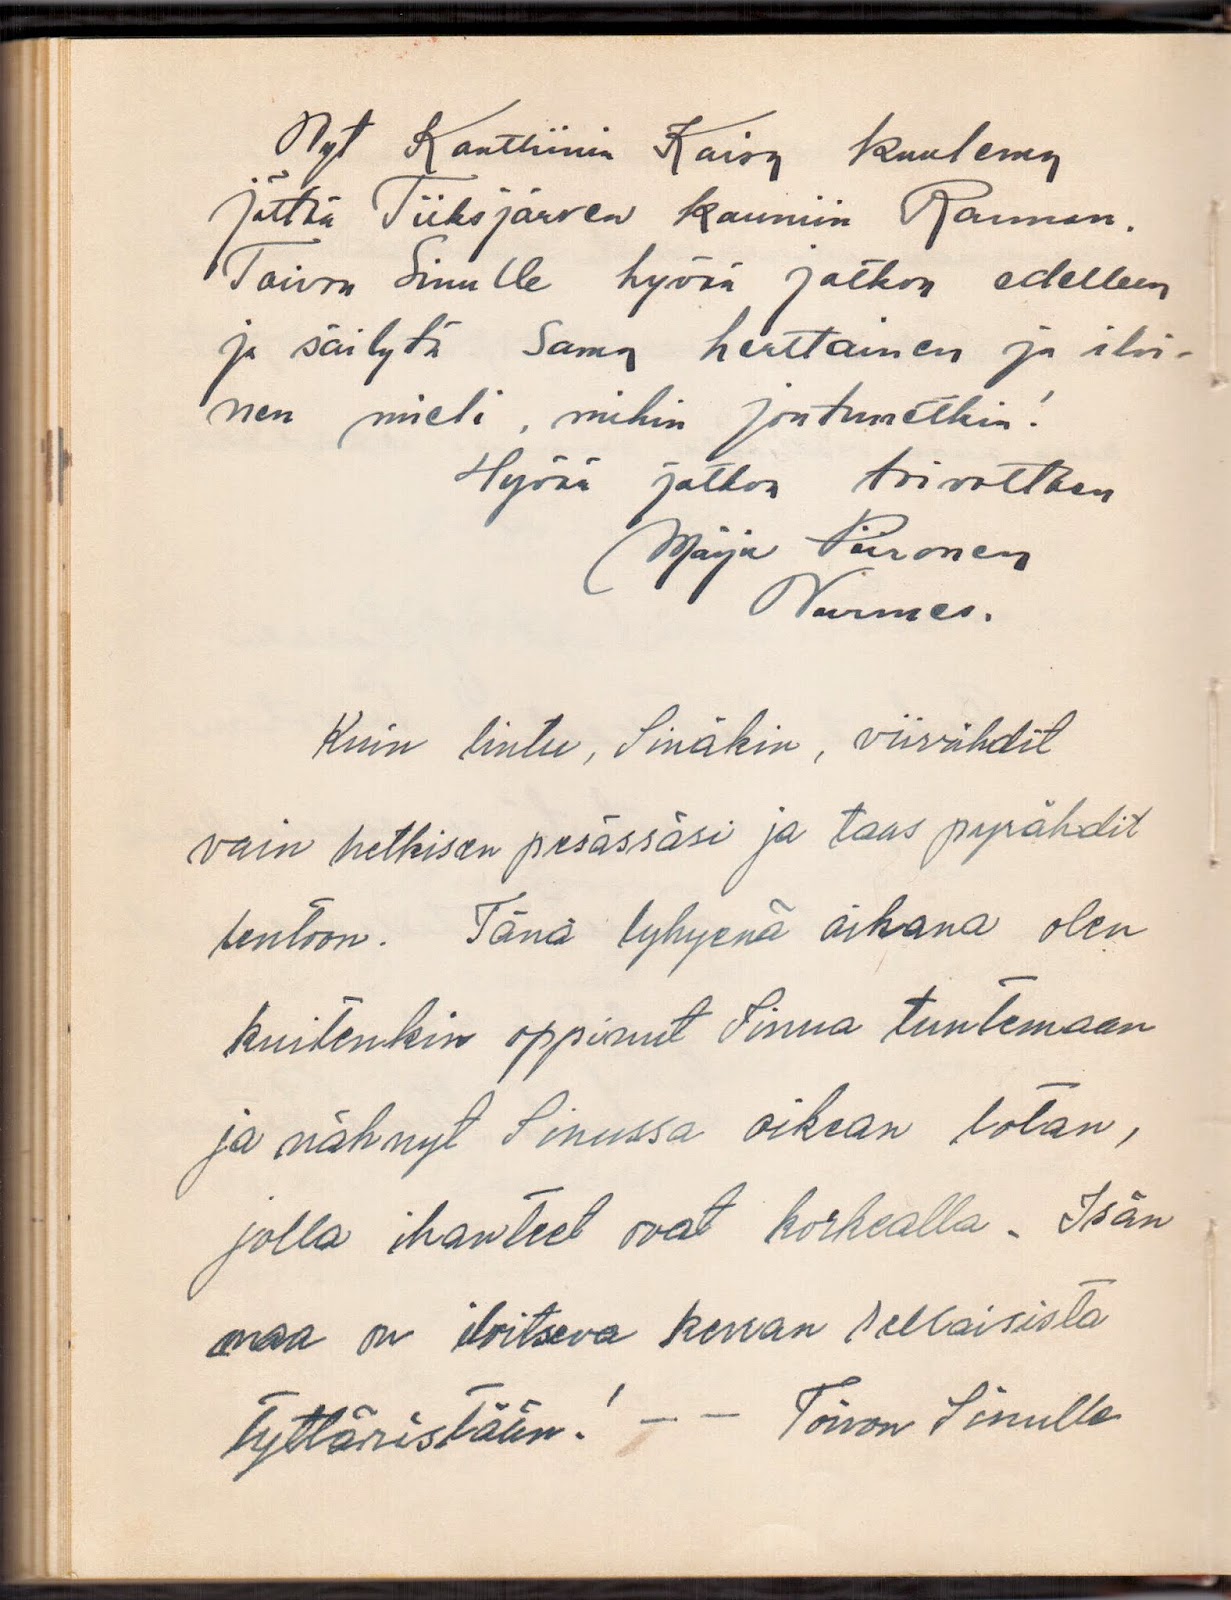 Nyt Kanttiinin Kaisa kuulema
jättää Tiiksjärven kauniin Rannan.
Toivon Sinulle hyvää jatkoa edelleen
ja säilytä sama herttainen ja iloi-
nen mieli, mihin joutunetkin!
Hyvää jatkoa toivottaen
Maija Piironen
Nurmes.
Kuin lintu, Sinäkin, viivähdit
vain hetkisen pesässäsi ja taas pyrähdit
lentoon. Tänä lyhyenä aikana olen
kuitenkin oppinut Sinua tuntemaan
ja nähnyt Sinussa oikean lotan,
jolla ihanteet ovat korkealla. Isän
maa on iloitseva kerran sellaisista
tyttäristään! — — Toivon Sinulle